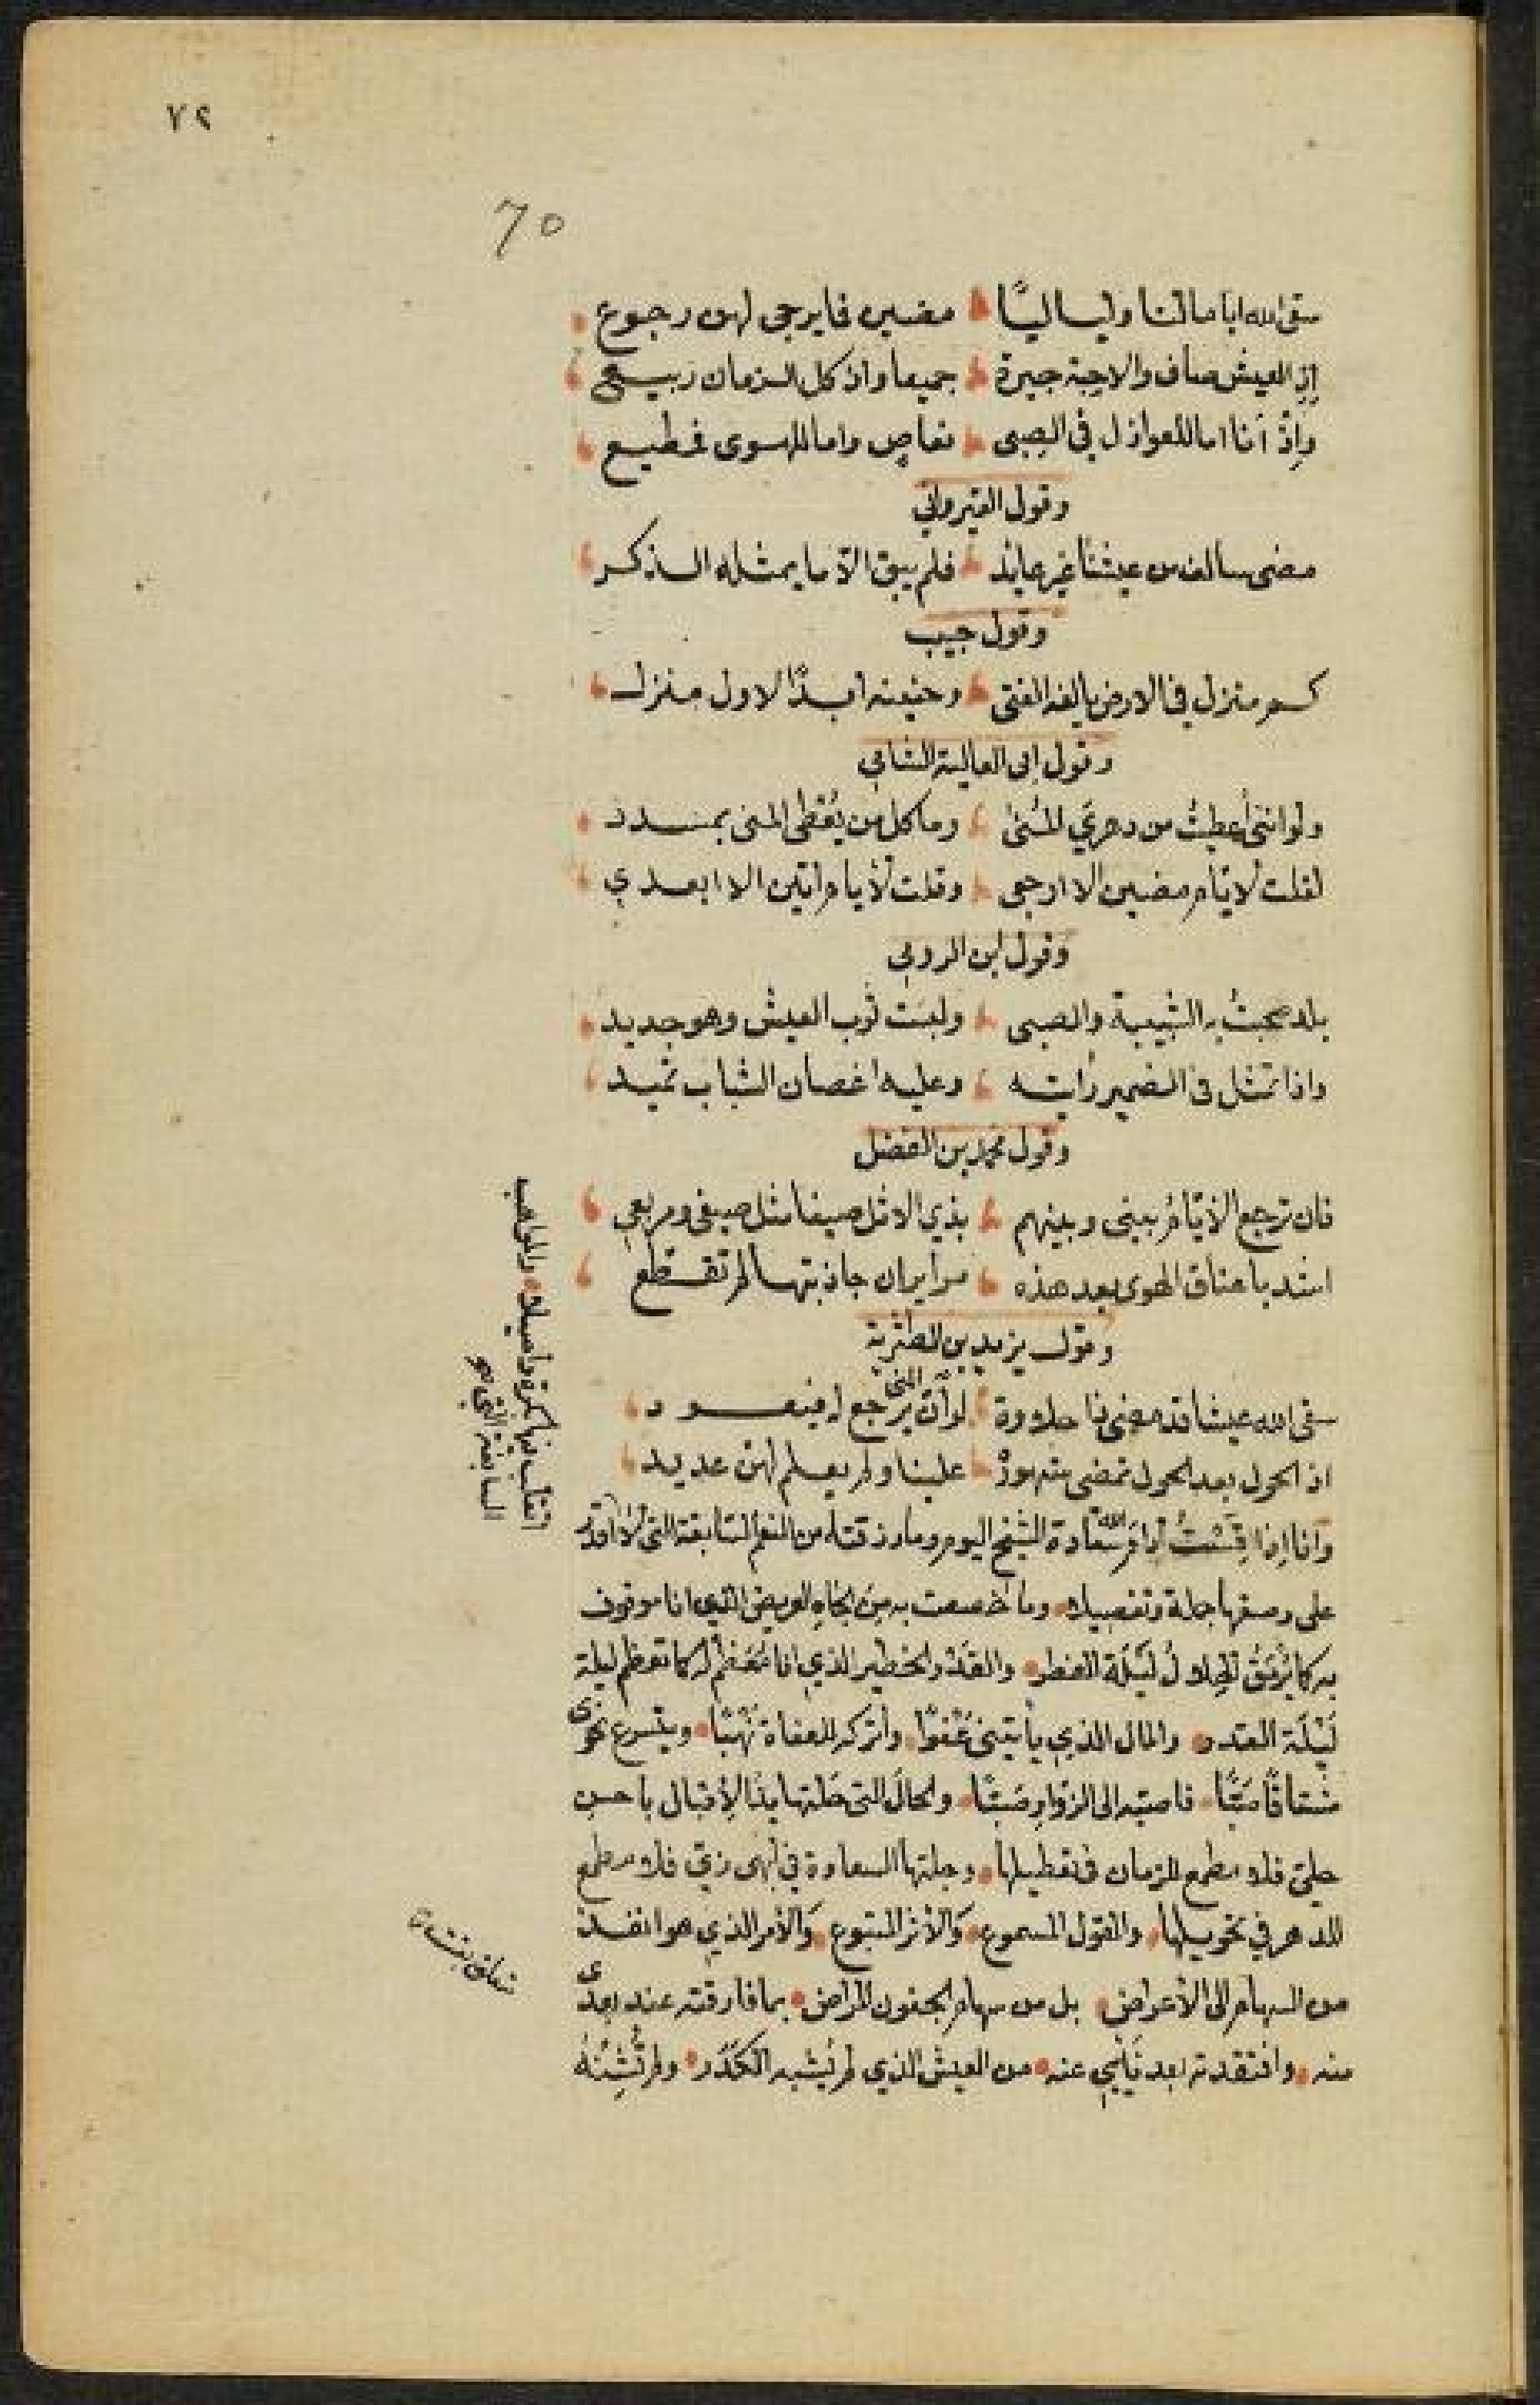 ٧٢
70
سقى الله اياما لنا ولياليًا مضين فما يرجى لهن رجوع
إذ العيش صاف والاحبة جيرة جميعا واذ كل الزمان ربيع
وإذْ أنا اما للعواذل في الصبى فعاصٍ واما للهوى فمطيع
وقول القيرواني
مضى سالف من عيشنا غير عايد فلم يبق الّا ما يمثله الذكر
وقول حبيب
كم منزل في الارض يالفه الفتى وحنينه ابدًا لاول منزل
وقول ابى العالية الشامي
ولو انني أُعطيتُ من دهري المُنى وما كل من يُعطى المنى بمسدد
لقلت لايّام مضين الا ارجعى وقلت لأيام اتين الا ابعدي
وقول ابن الرومي
بلد صحبتُ به الشبيبة والصبى ولبست ثوب العيش وهو جديد
واذا تمثل في الضمير رأيته وعليه اغصان الشباب تميد
وقول محمد بن الفضل
فان ترجع الايّامُ بينى وبينهم بذي الاثل صيفا مثل صيفى ومربعي
اشد باعناق الهوى بعد هذه مراير ان جاذبتها لم تقطع
وقول يزيد بن الطثرية
سقى الله عيشا قد مضى ذا حلاوة لو أنّ المنى يرجع لم فيعود
اذ الحول بعد الحول تمضى شهورهْ علينا ولم يعلم لهن عديد
وانا إذا قِسْتُ أدام الله سعادة الشيخ اليوم وما رزقته من النعم السابغة التى لا أقدر
على وصفها جملة وتفصيلا وما خصصت به من الجاهِ العريض الذي انا مرموق
به كما يُرمَقُ الهِلالُ لَيْلَةَ الفطر والقَدْر الخطير الذي انا مُعَظّم له كما تعظم ليلة
لَيْلَة القدر والمال الذي يأتينى عَفْوًا وأتركه للعفاة نَهْبًا ويسرع نحوى
مشتاقًا صَبًّا فاصبّه الى الزوّارِ صَبًّا والحالَ التى حَلّتها يدُ الإقبال باحسن
حلىّ فلا مطمع للزمان فى تعطيلها وجلتها السعادة في أبهى زيّ فلا مطمع
للدهر في تحويلها والقول المسموع وَالأثر المتبوع وَالأمر الذي هو انفذ
من السهام الى الأعراض بل من سهام الجفون المراض بما فارقته عند بعدى
منه وافتقدته بعد نَأْيي عنه من العيش الذي لم يُشبه الكَدَر ولم تُشِنْهُ
اتقلب فيها بكرة واصيلا والمواهب
السابغة التى هو
متعلق بقست